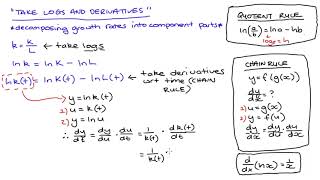 "TAKE LOGS AND DERIVATIVES"
*decomposing growth rates into component parts*
k = K/L ← take logs
ln k = ln K - ln L
ln k(t) = ln K(t) - ln L(t) ← take derivatives
wrt time (CHAIN
RULE)
y = ln k(t)
1) u = k(t)
2) y = ln u
∴ dy/dt = dy/du · du/dt = 1/k(t) · dk(t)/dt
= 1/k(t) ·
QUOTIENT RULE
ln(a/b) = ln a - ln b
CHAIN RULE
y = f(g(x))
dy/dx = ?
1) u = g(x)
2) y = f(u)
dy/dx = dy/du · du/dx
d/dx (ln x) = 1/x